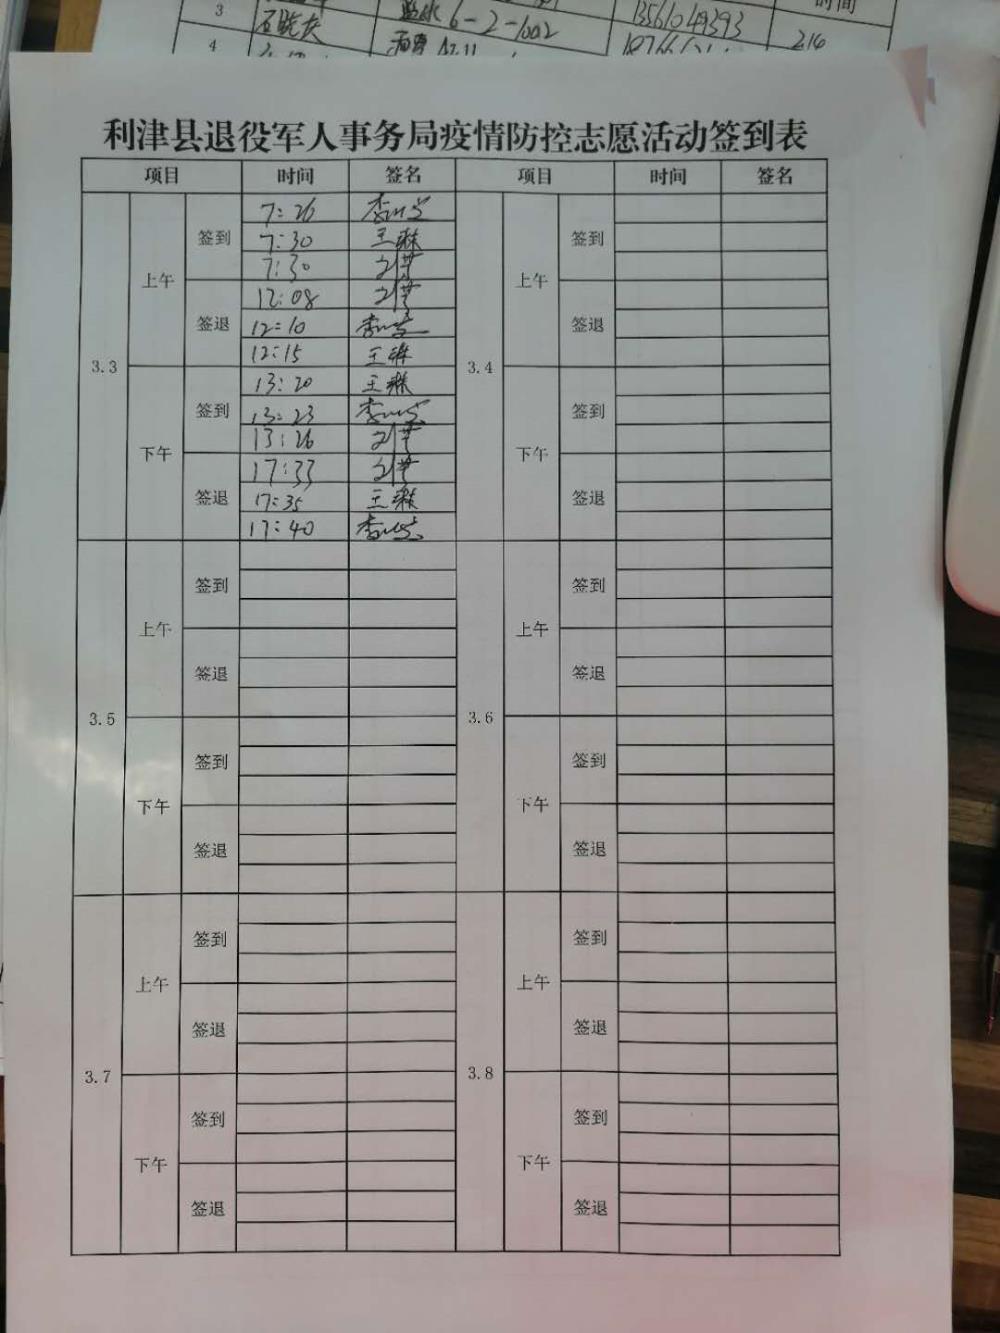 3
6-2-1002
13561049393
时间
4
216
利津县退役军人事务局疫情防控志愿活动签到表
项目 时间 签名 项目 时间 签名
3.3 上午 签到 7:26
7:30 王琳
7:30
签退 12:08
12:10
12:15 王琳
下午 签到 13:20 王琳
13:23
13:26
签退 17:33
17:35 王琳
17:40
3.4 上午 签到
签退
下午 签到
签退
3.5 上午 签到
签退
下午 签到
签退
3.6 上午 签到
签退
下午 签到
签退
3.7 上午 签到
签退
下午 签到
签退
3.8 上午 签到
签退
下午 签到
签退